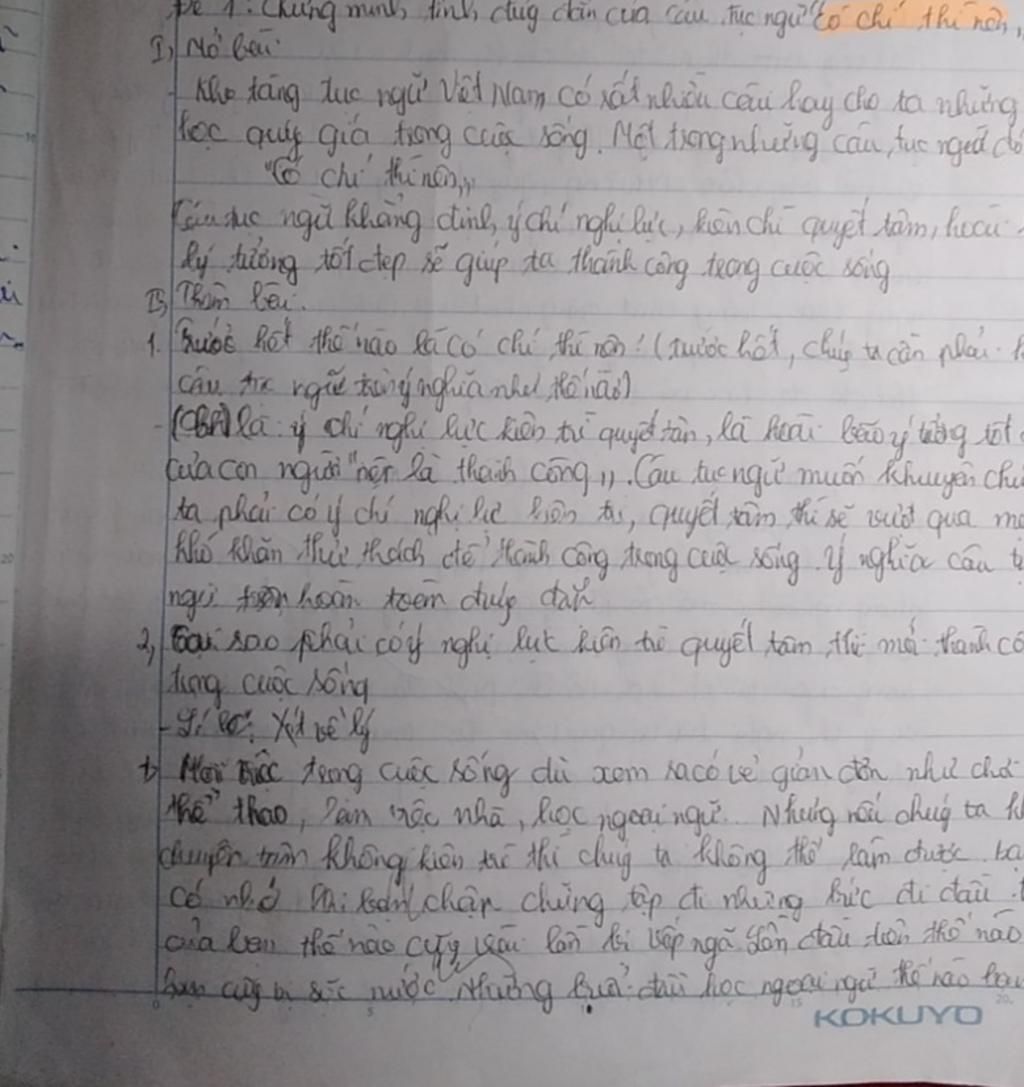 Đề 1: Chứng minh tính đúng đắn của câu tục ngữ "có chí thì nên,
I, Mở bài
- Kho tàng tục ngữ Việt Nam có rất nhiều câu hay cho ta những
học quý giá trong cuộc sống. Một trong những câu tục ngữ đó
"Có chí thì nên,,
Câu tục ngữ khẳng định ý chí nghị lực, kiên chì quyết tâm, hoài
lý tưởng tốt đẹp sẽ giúp ta thành công trong cuộc sống
II, Thân bài.
1. Trước hết thế nào là có chí thì nên? (trước hết, chúng ta cần phải
câu tục ngữ này ý nghĩa như thế nào)
- là ý chí nghị lực kiên trì quyết tâm, là hoài bão ý tưởng tốt
của con người "nên là thành công,,. Câu tục ngữ muốn khuyên
ta phải có ý chí nghị lực kiên trì, quyết tâm thì sẽ vượt qua
khó khăn thử thách để thành công trong cuộc sống. ý nghĩa câu
ngữ hoàn toàn đúng đắn
2, Tại sao phải có ý nghị lực kiên trì quyết tâm thì mới thành
trong cuộc sống
- Xét về lý
+ Mọi việc trong cuộc sống dù xem ra có vẻ giản đơn như chơi
thể thao, làm việc nhà, học ngoại ngữ. Nhưng nếu chúng ta
chuyên tâm không kiên trì thì chúng ta không thể làm được.
có nhớ khi chập chững tập đi những bước đi đầu
của bạn thế nào cũng vài lần bị vấp ngã lần đầu tiên thế nào
bạn cũng bị sặc nước Những buổi đầu học ngoại ngữ thế nào
KOKUYO